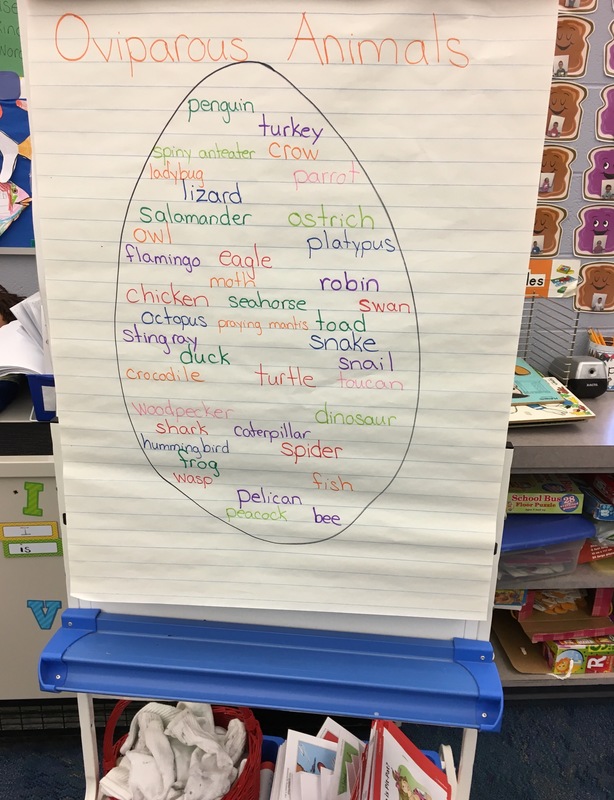 Oviparous Animals
penguin
turkey
spiny anteater crow
ladybug parrot
lizard
salamander ostrich
owl platypus
flamingo eagle
moth robin
chicken seahorse swan
octopus praying mantis toad
stingray snake
duck snail
crocodile turtle toucan
woodpecker dinosaur
shark caterpillar
hummingbird spider
frog
wasp fish
pelican
peacock bee
I
I
is
V
School Bus
Floor Puzzle